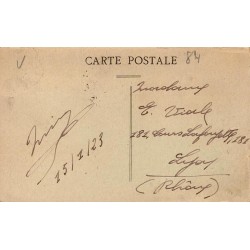 CARTE POSTALE
84
15/1/23
Madame
E.
182 Cours Lafayette, 182
Lyon
(Rhône)